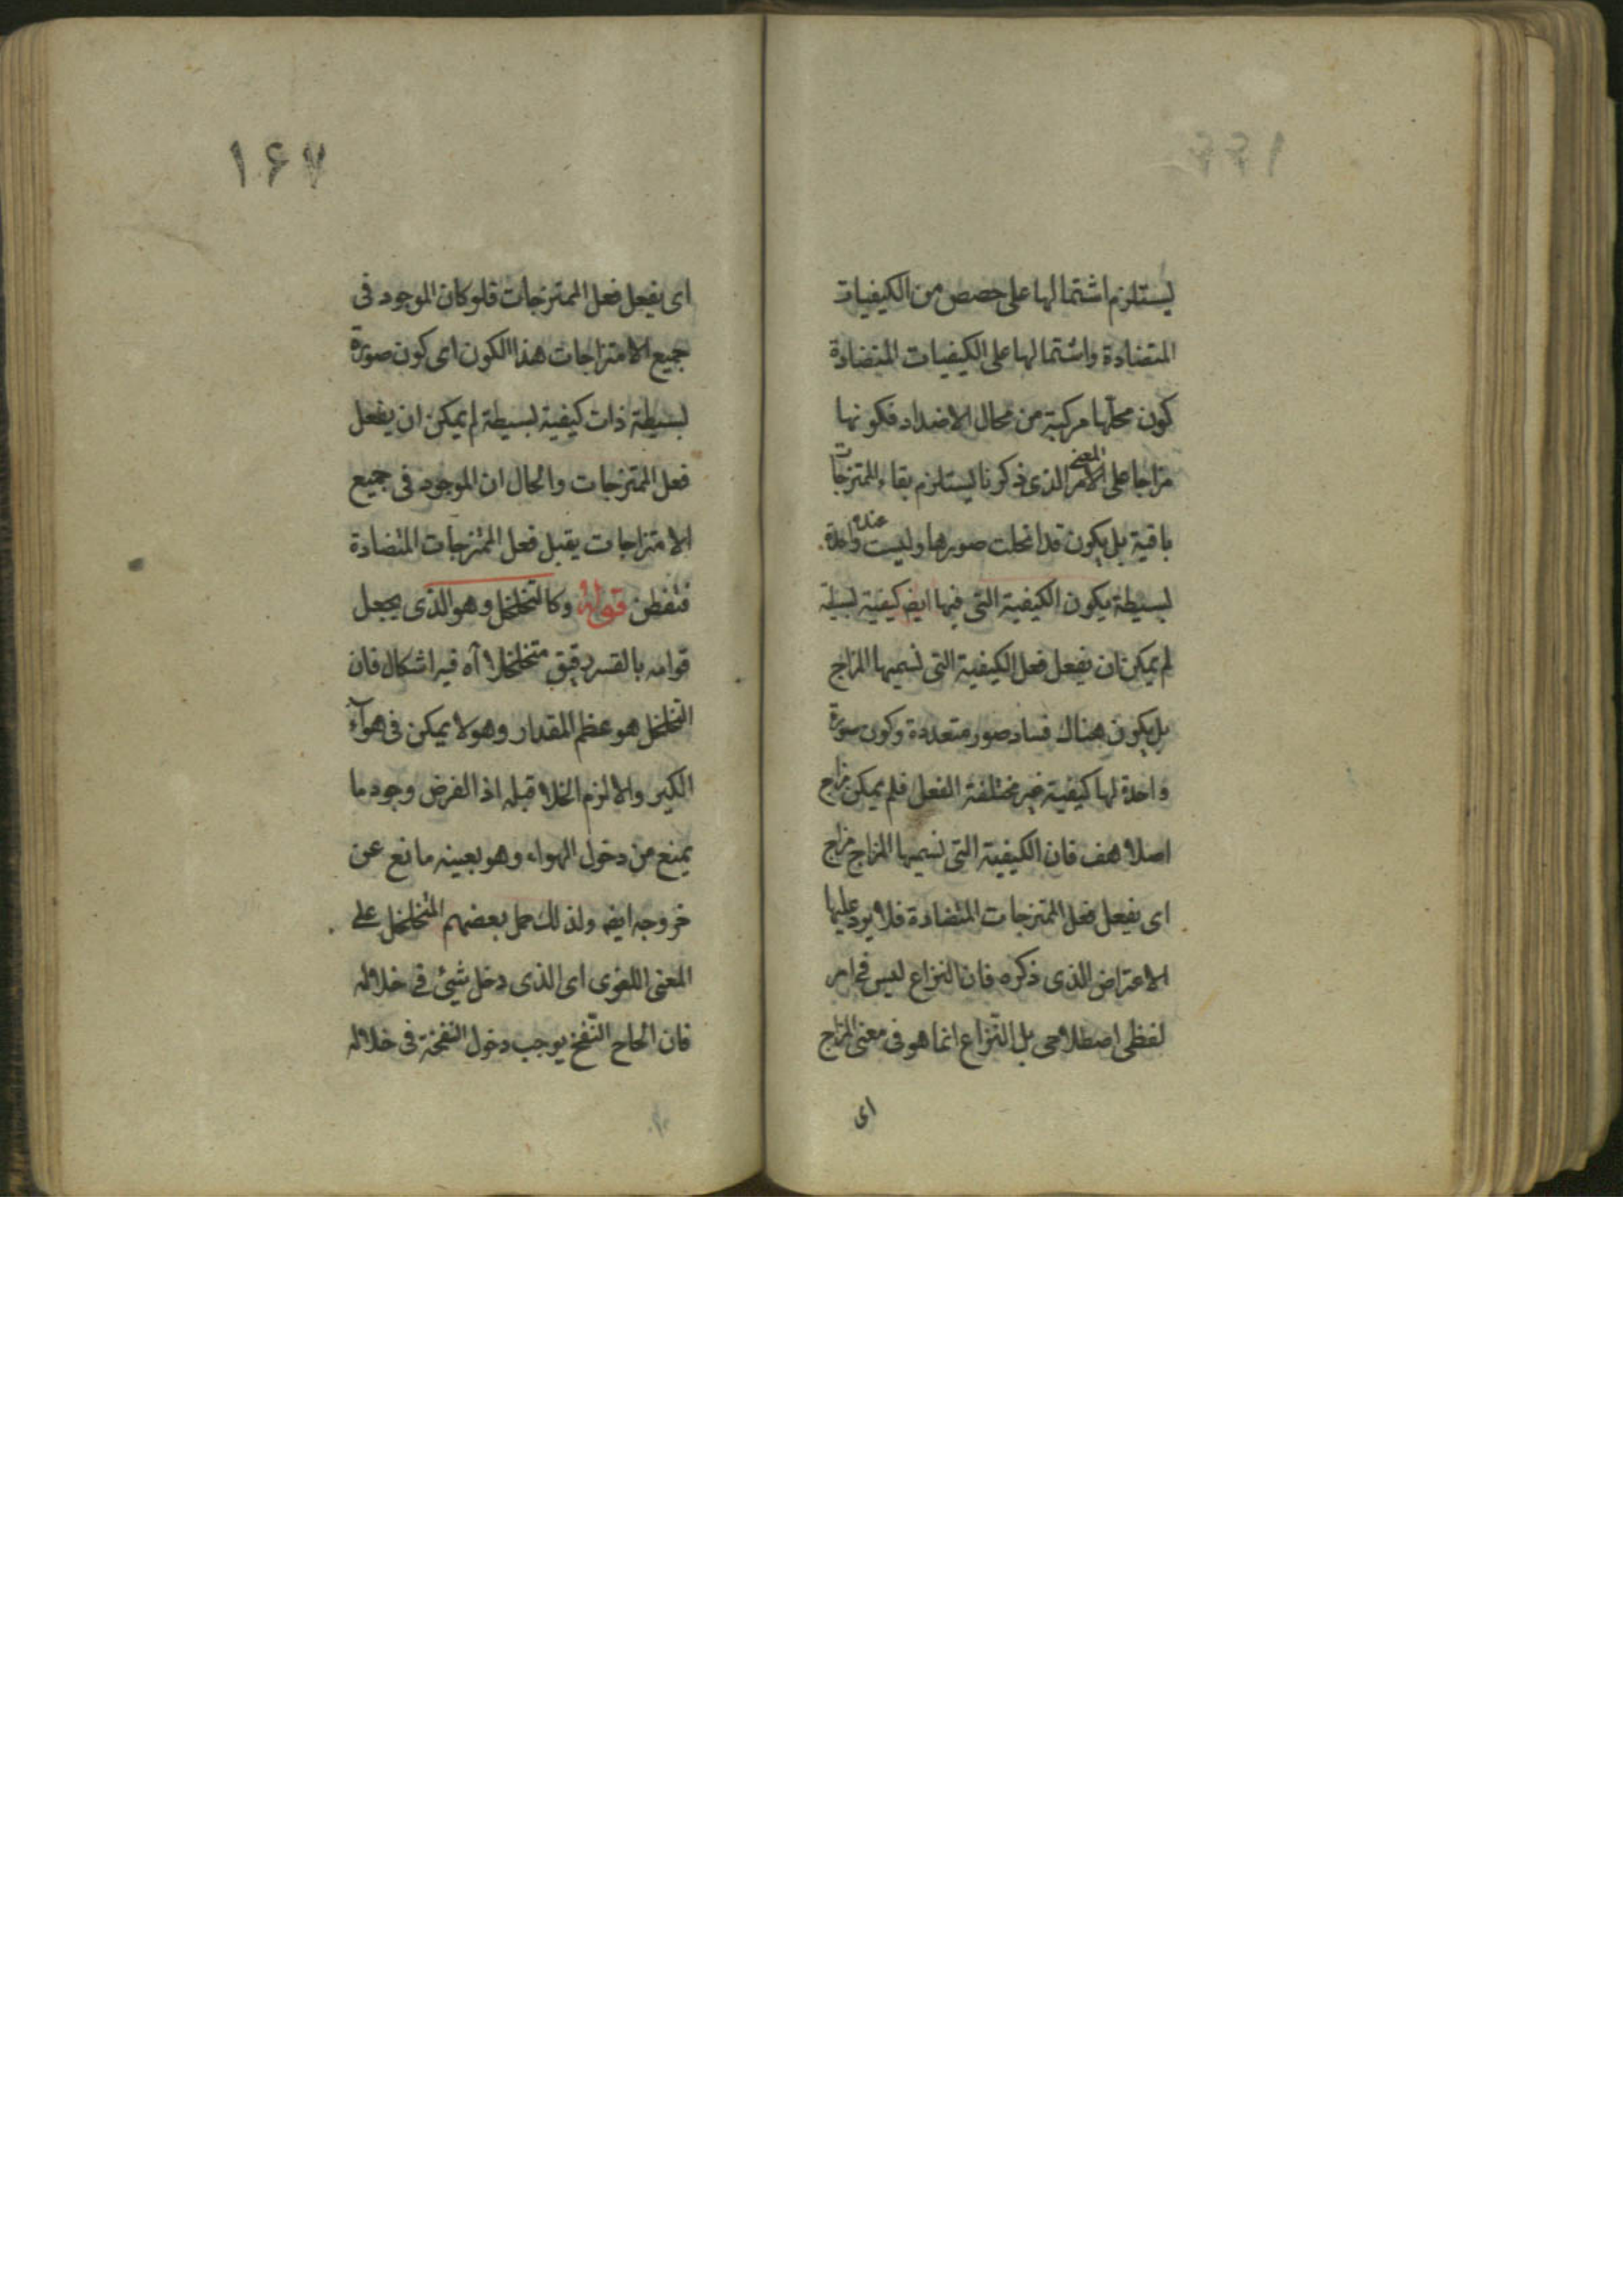 يستلزم اشتمالها على حصص من الكيفيات
المتضادة واشتمالها على الكيفيات المتضادة
كون محلها مركبة من محال الاضداد فكونها
مزاجا على الامر المعنى الذى ذكرنا يستلزم بقاء الممتزجات
باقية بل يكون قد انحلت صورها وليست عنده واحدة
بسيطة يكون الكيفية التى فيها ايض كيفية بسيطة
لم يمكن ان يفعل فعل الكيفية التى نسميها المزاج
بل يكون هناك فساد صور متعددة وكون صورة
واحدة لها كيفية غير مختلفة الفعل فلم يمكن مزاج
اصلا هف فان الكيفية التى نسميها المزاج مزاج
اى يفعل فعل الممتزجات المتضادة فلا يرد عليها
الاعتراض الذى ذكره فان النزاع ليس فى امر
لفظى اصطلاحى بل النزاع انما هو فى معنى المزاج
اى
۱۶۷
اى يفعل فعل الممتزجات فلو كان الموجود فى
جميع الامتزاجات هذا الكون اى كون صورة
بسيطة ذات كيفية بسيطة لم يمكن ان يفعل
فعل الممتزجات والحال ان الموجود فى جميع
الامتزاجات يقبل فعل الممتزجات المتضادة
فتفطن قوله وكالتخلخل وهو الذى يجعل
قوامه بالقسر دقيق متخلخلا آه فيه اشكال فان
التخلخل هو عظم المقدار وهو لا يمكن فى هواء
الكير والا لزم الخلا قبله اذ الفرض وجود ما
يمنع من دخول الهواء وهو بعينه مانع عن
خروجه ايض ولذلك حمل بعضهم المتخلخل على
المعنى اللغوى اى الذى دخل شيئ فى خلاله
فان الحاح النفخ يوجب دخول النفخة فى خلاله